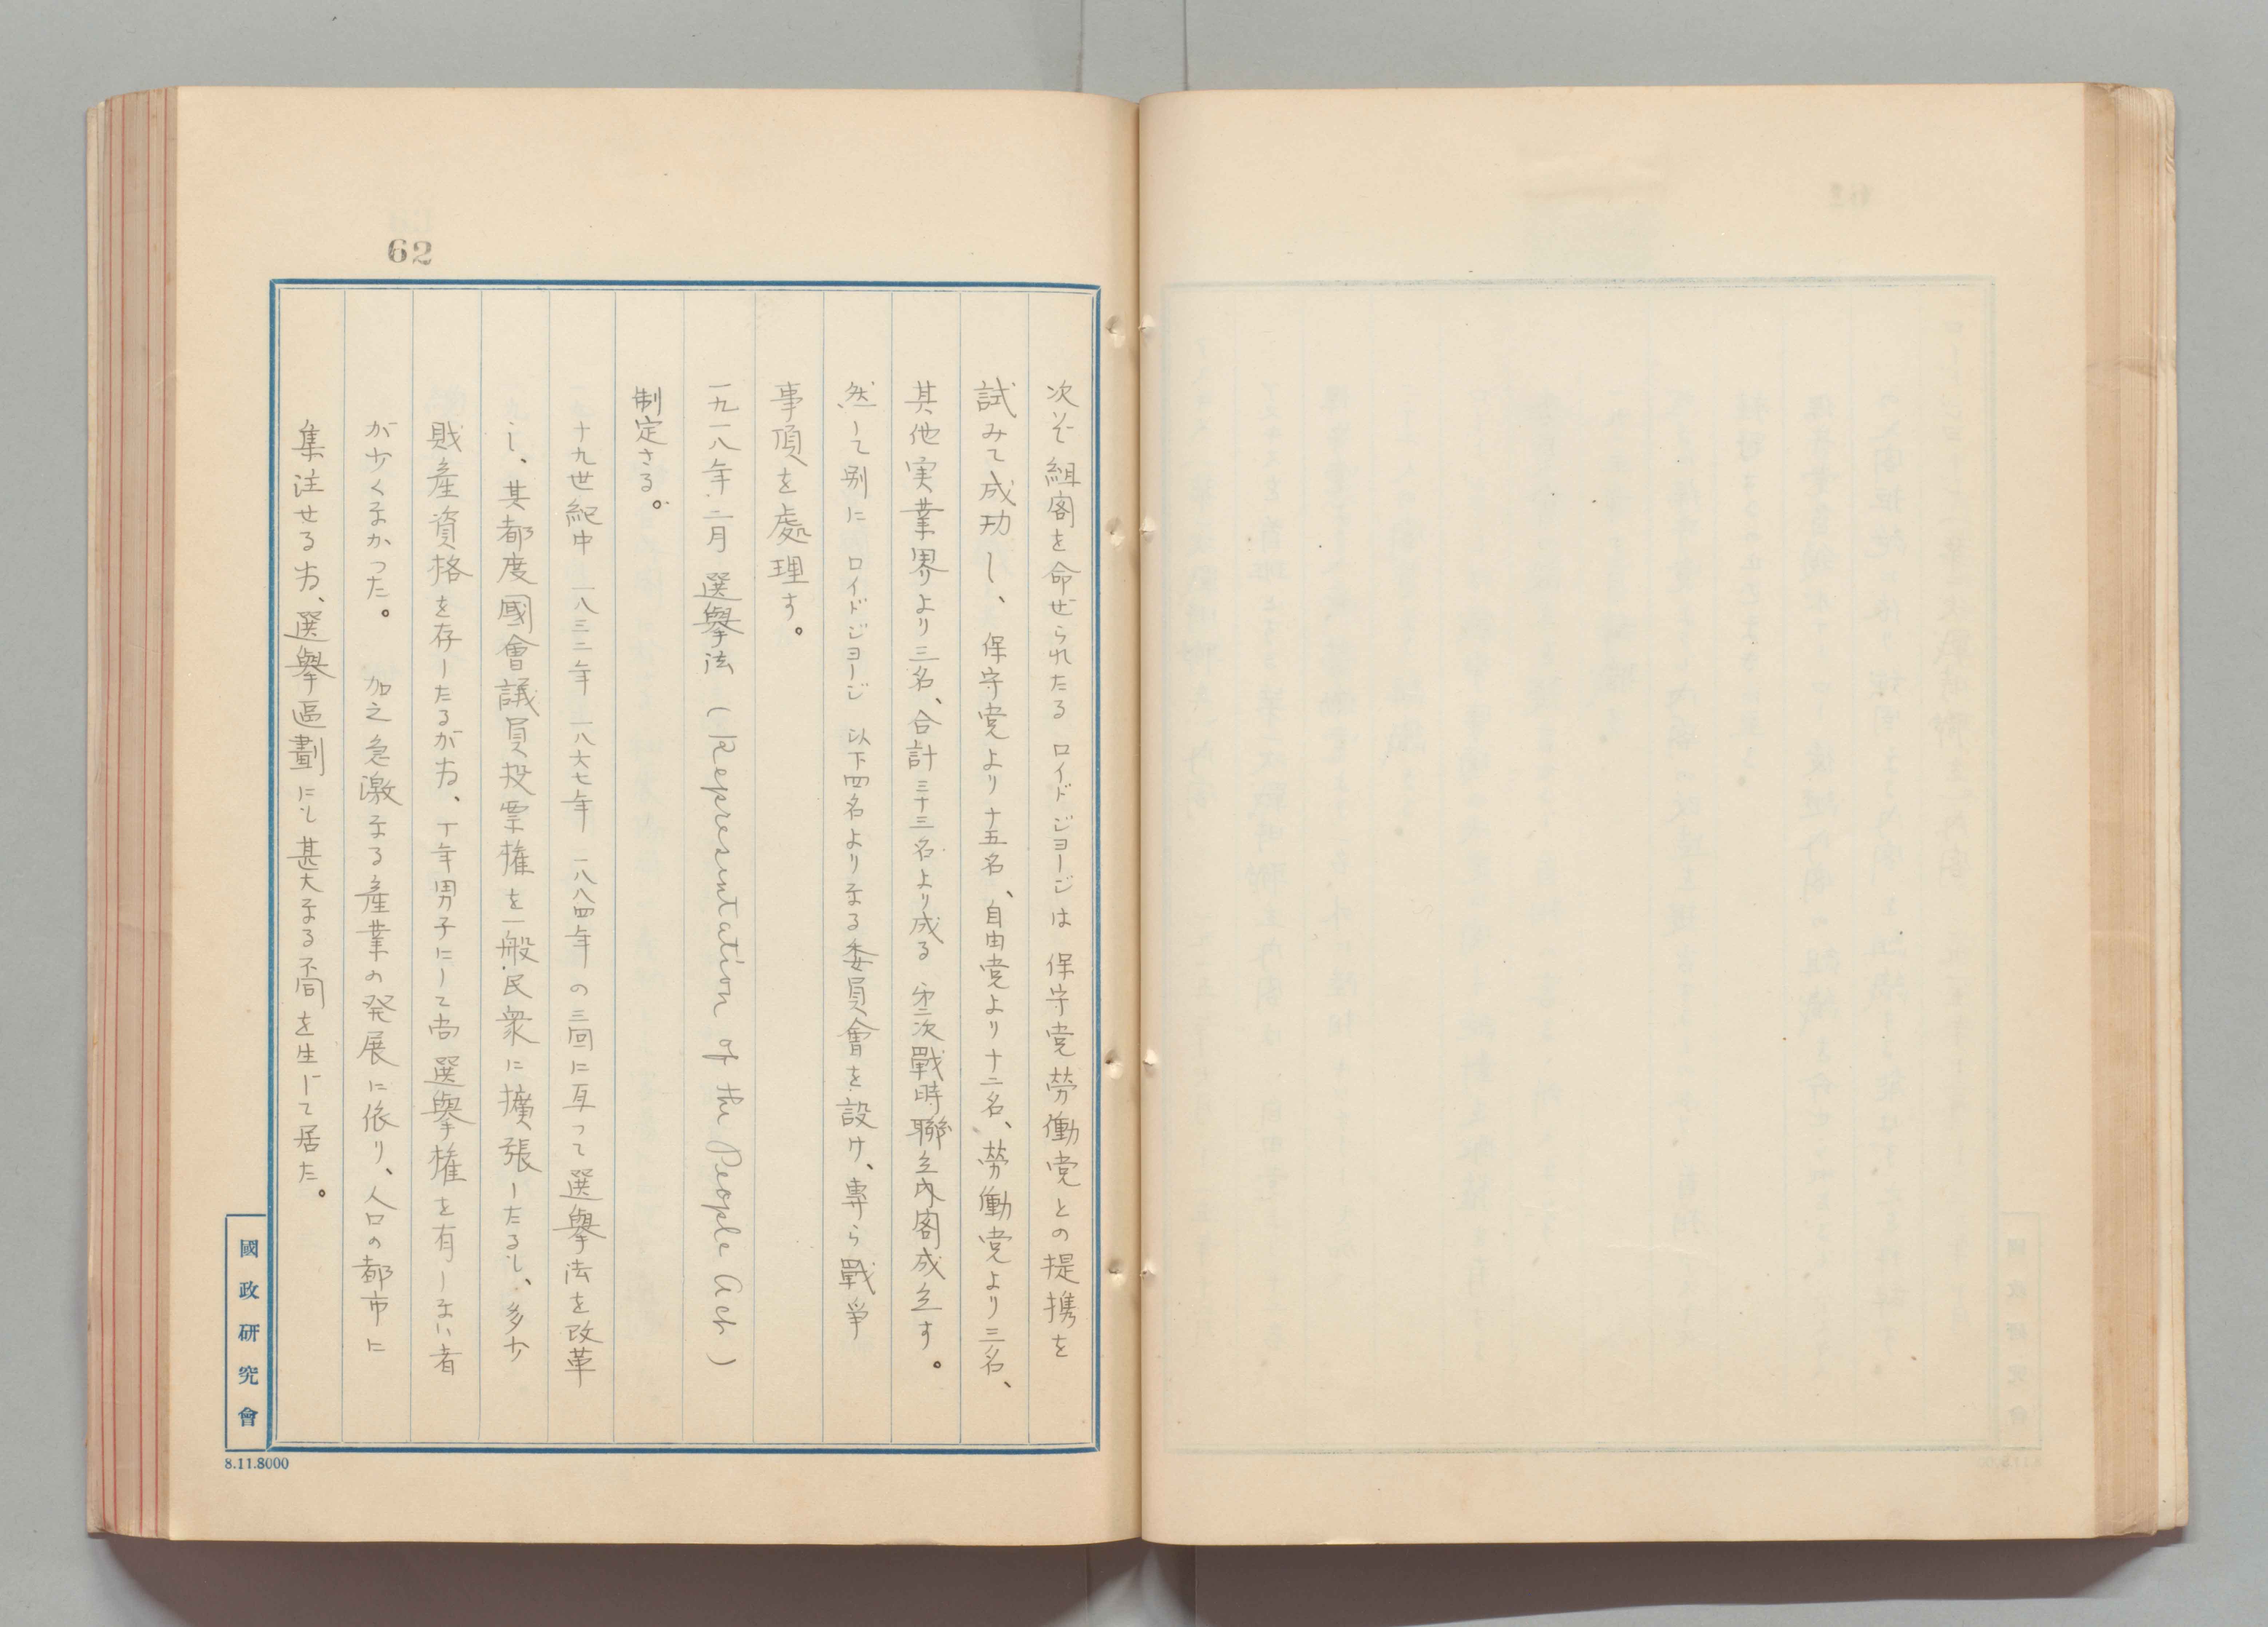 62
次で組客を命ぜられたる ロイドジョージは 保守党労働党との提携を
試みて成功し、保守党より十五名、自由党より十二名、労働党より三名、
其他実業界より三名、合計三十三名より成る 第二次戰時聯立内客成立す。
然して別に ロイドジョージ 以下四名よりなる委員會を設け、專ら戰爭
事項を處理す。
一九一八年二月 選擧法 (Representation of the People Act)
制定さる。
十九世紀中 一八三二年 一八六七年 一八八四年の三回に亙って選擧法を改革
し、其都度國會議員投票権を一般民衆に擴張したるも、多少
財産資格を存したるがため、丁年男子にして尚選擧権を有しない者
が少くなかった。 加之急激なる産業の発展に依り、人口の都市に
集注せるため、選擧區劃にも甚大なる不同を生じて居た。
國政研究會
8.11.8000